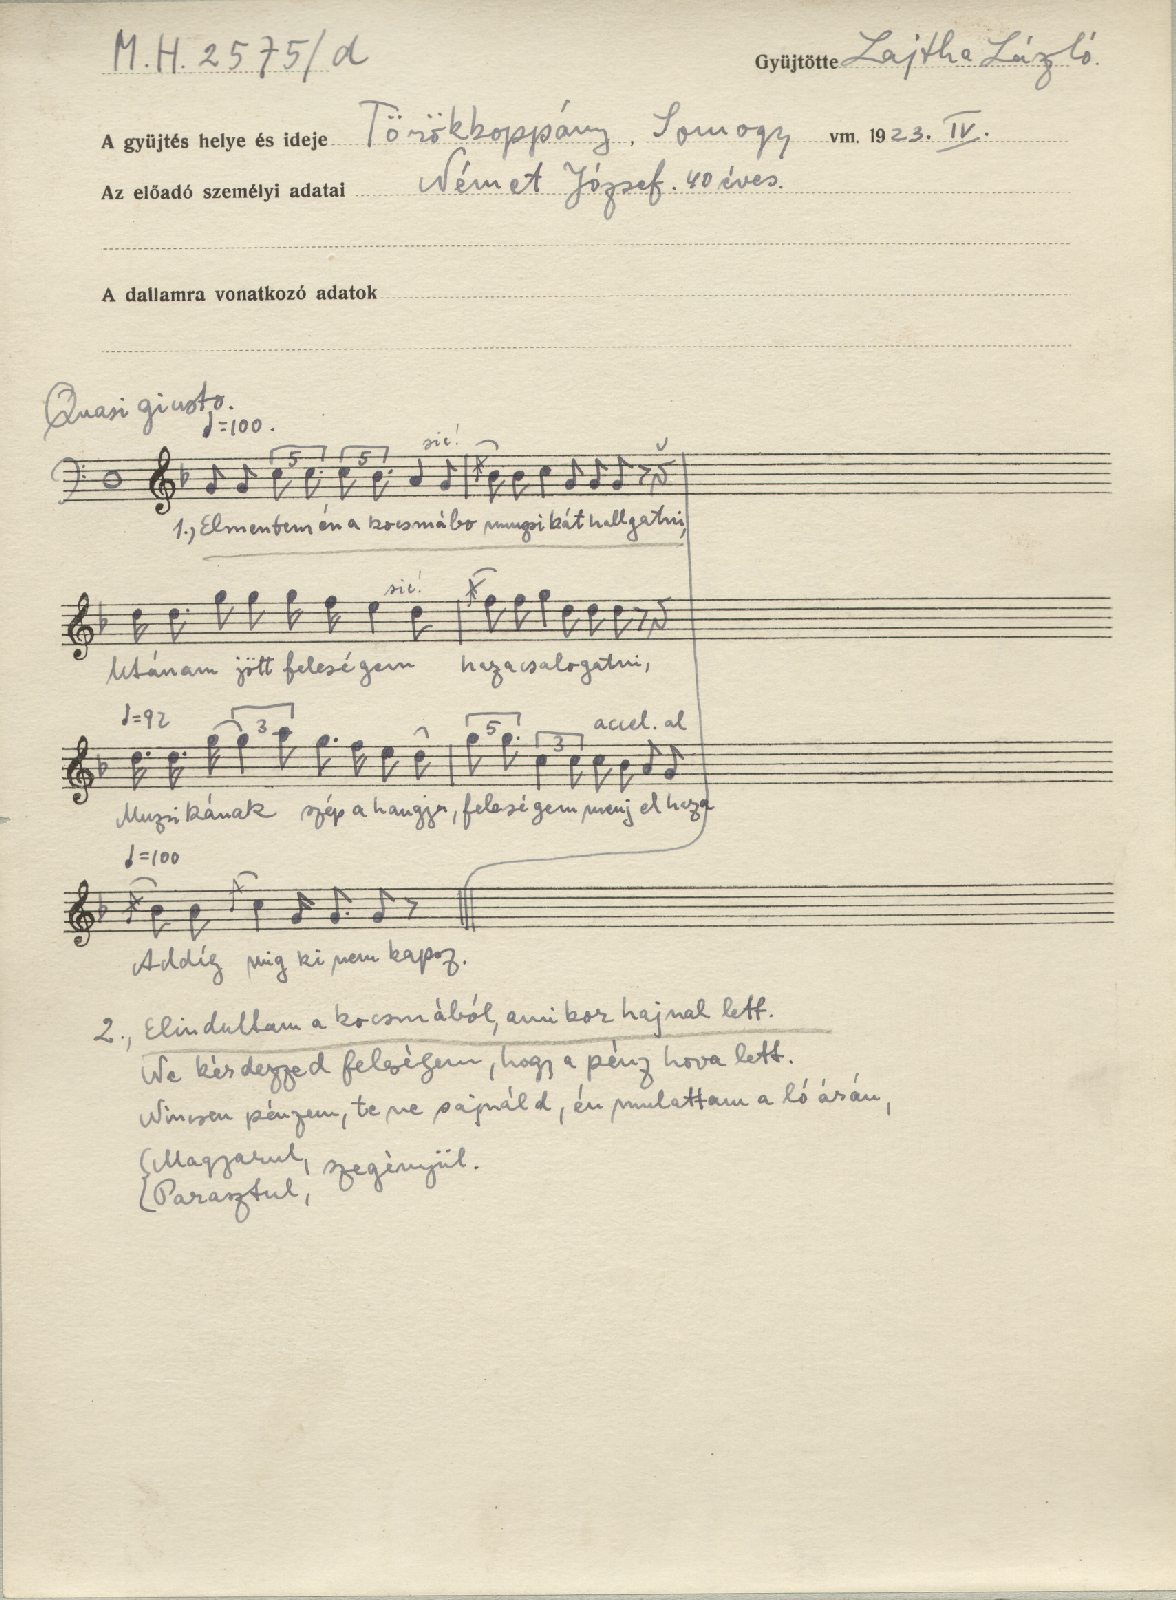 M.H. 2575/d
Gyüjtötte Lajtha László.
A gyüjtés helye és ideje Törökkoppány, Somogy vm. 1923. IV.
Az előadó személyi adatai Német József. 40 éves.
A dallamra vonatkozó adatok
Quasi giusto.
♩=100.
5 5 sic!
1., Elmentem én a kocsmábo muzsikát hallgatni,
sic!
Utánam jött feleségem hazacsalogatni,
♩=92 3 5 3 accel. al
Muzsikának szép a hangja, feleségem menj el haza
♩=100
Addig mig ki nem kapsz.
2., Elindultam a kocsmából, amikor hajnal lett.
Ne kérdezzed feleségem, hogy a pénz hova lett.
Nincsen pénzem, te ne sajnáld, én mulattam a ló árán,
(Magyarul, szegényül.
(Parasztul,